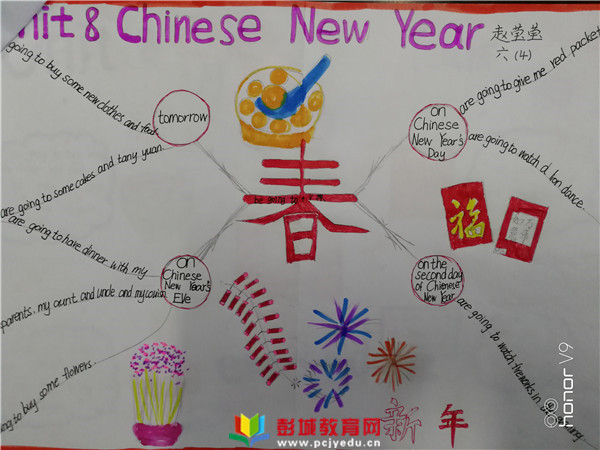 nit 8 Chinese New Year
赵莹莹
六(4)
going to buy some new clothes and food.
tomorrow
are going to some cakes and tany yuan.
On
Chinese
New Year's
Day
are going to give me red packet
are going to watch a lion dance.
春
be going to
福
are going to have dinner with my
parents. my aunt and uncle and my cousin
on
Chinese
New Year's
Eve
ng to buy some flowers.
on the
second day
of Chinese
New Year
are going to watch fireworks in
新年
彭城教育网
www.pcjyedu.cn
honor V9